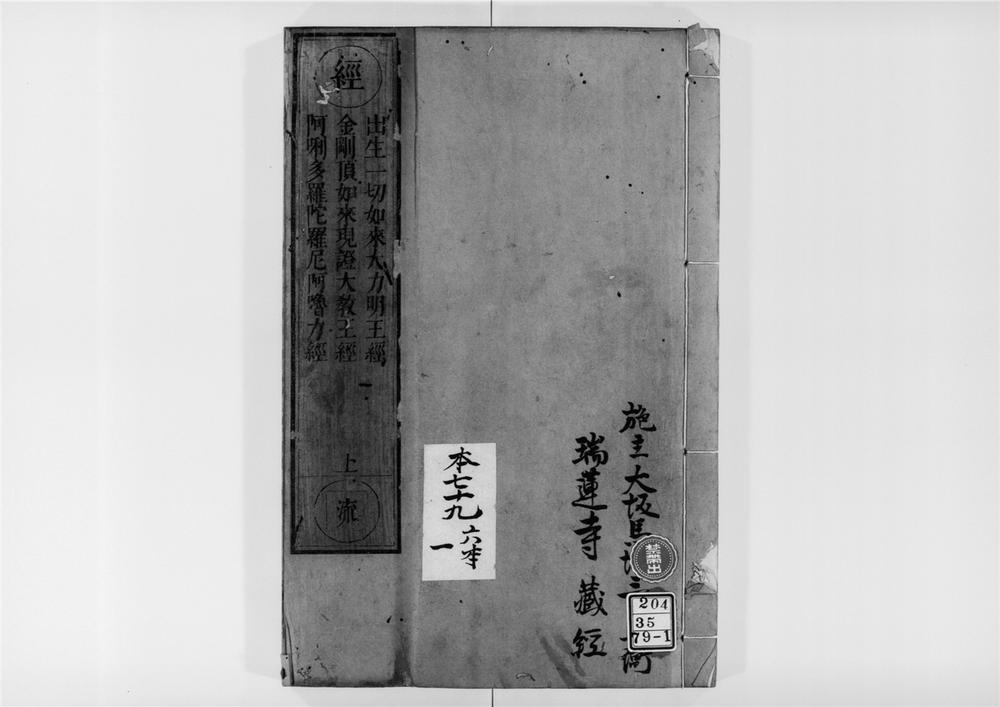 施主大坂
瑞蓮寺藏經
禁帶出
204
35
79-1
本七十九
六本
一
經
出生一切如來大力明王經
金剛頂如來現證大教王經
阿唎多羅陀羅尼阿嚕力經
上
流